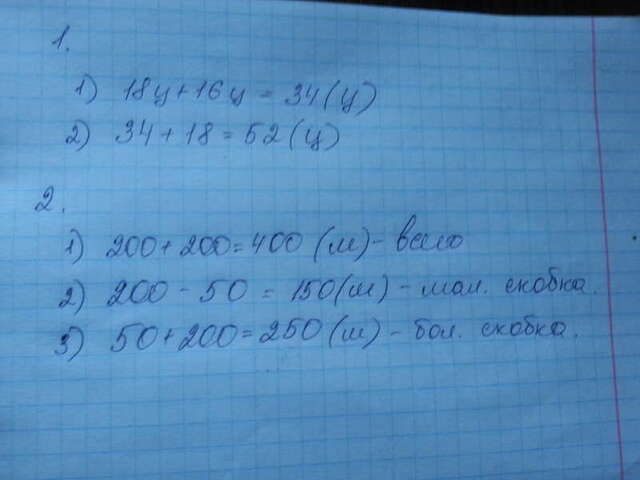 1.
1) 18ц + 16ц = 34 (ц)
2) 34 + 18 = 52 (ц)
2.
1) 200 + 200 = 400 (м) - всего
2) 200 - 50 = 150 (м) - мал. скобка.
3) 50 + 200 = 250 (м) - бол. скобка.